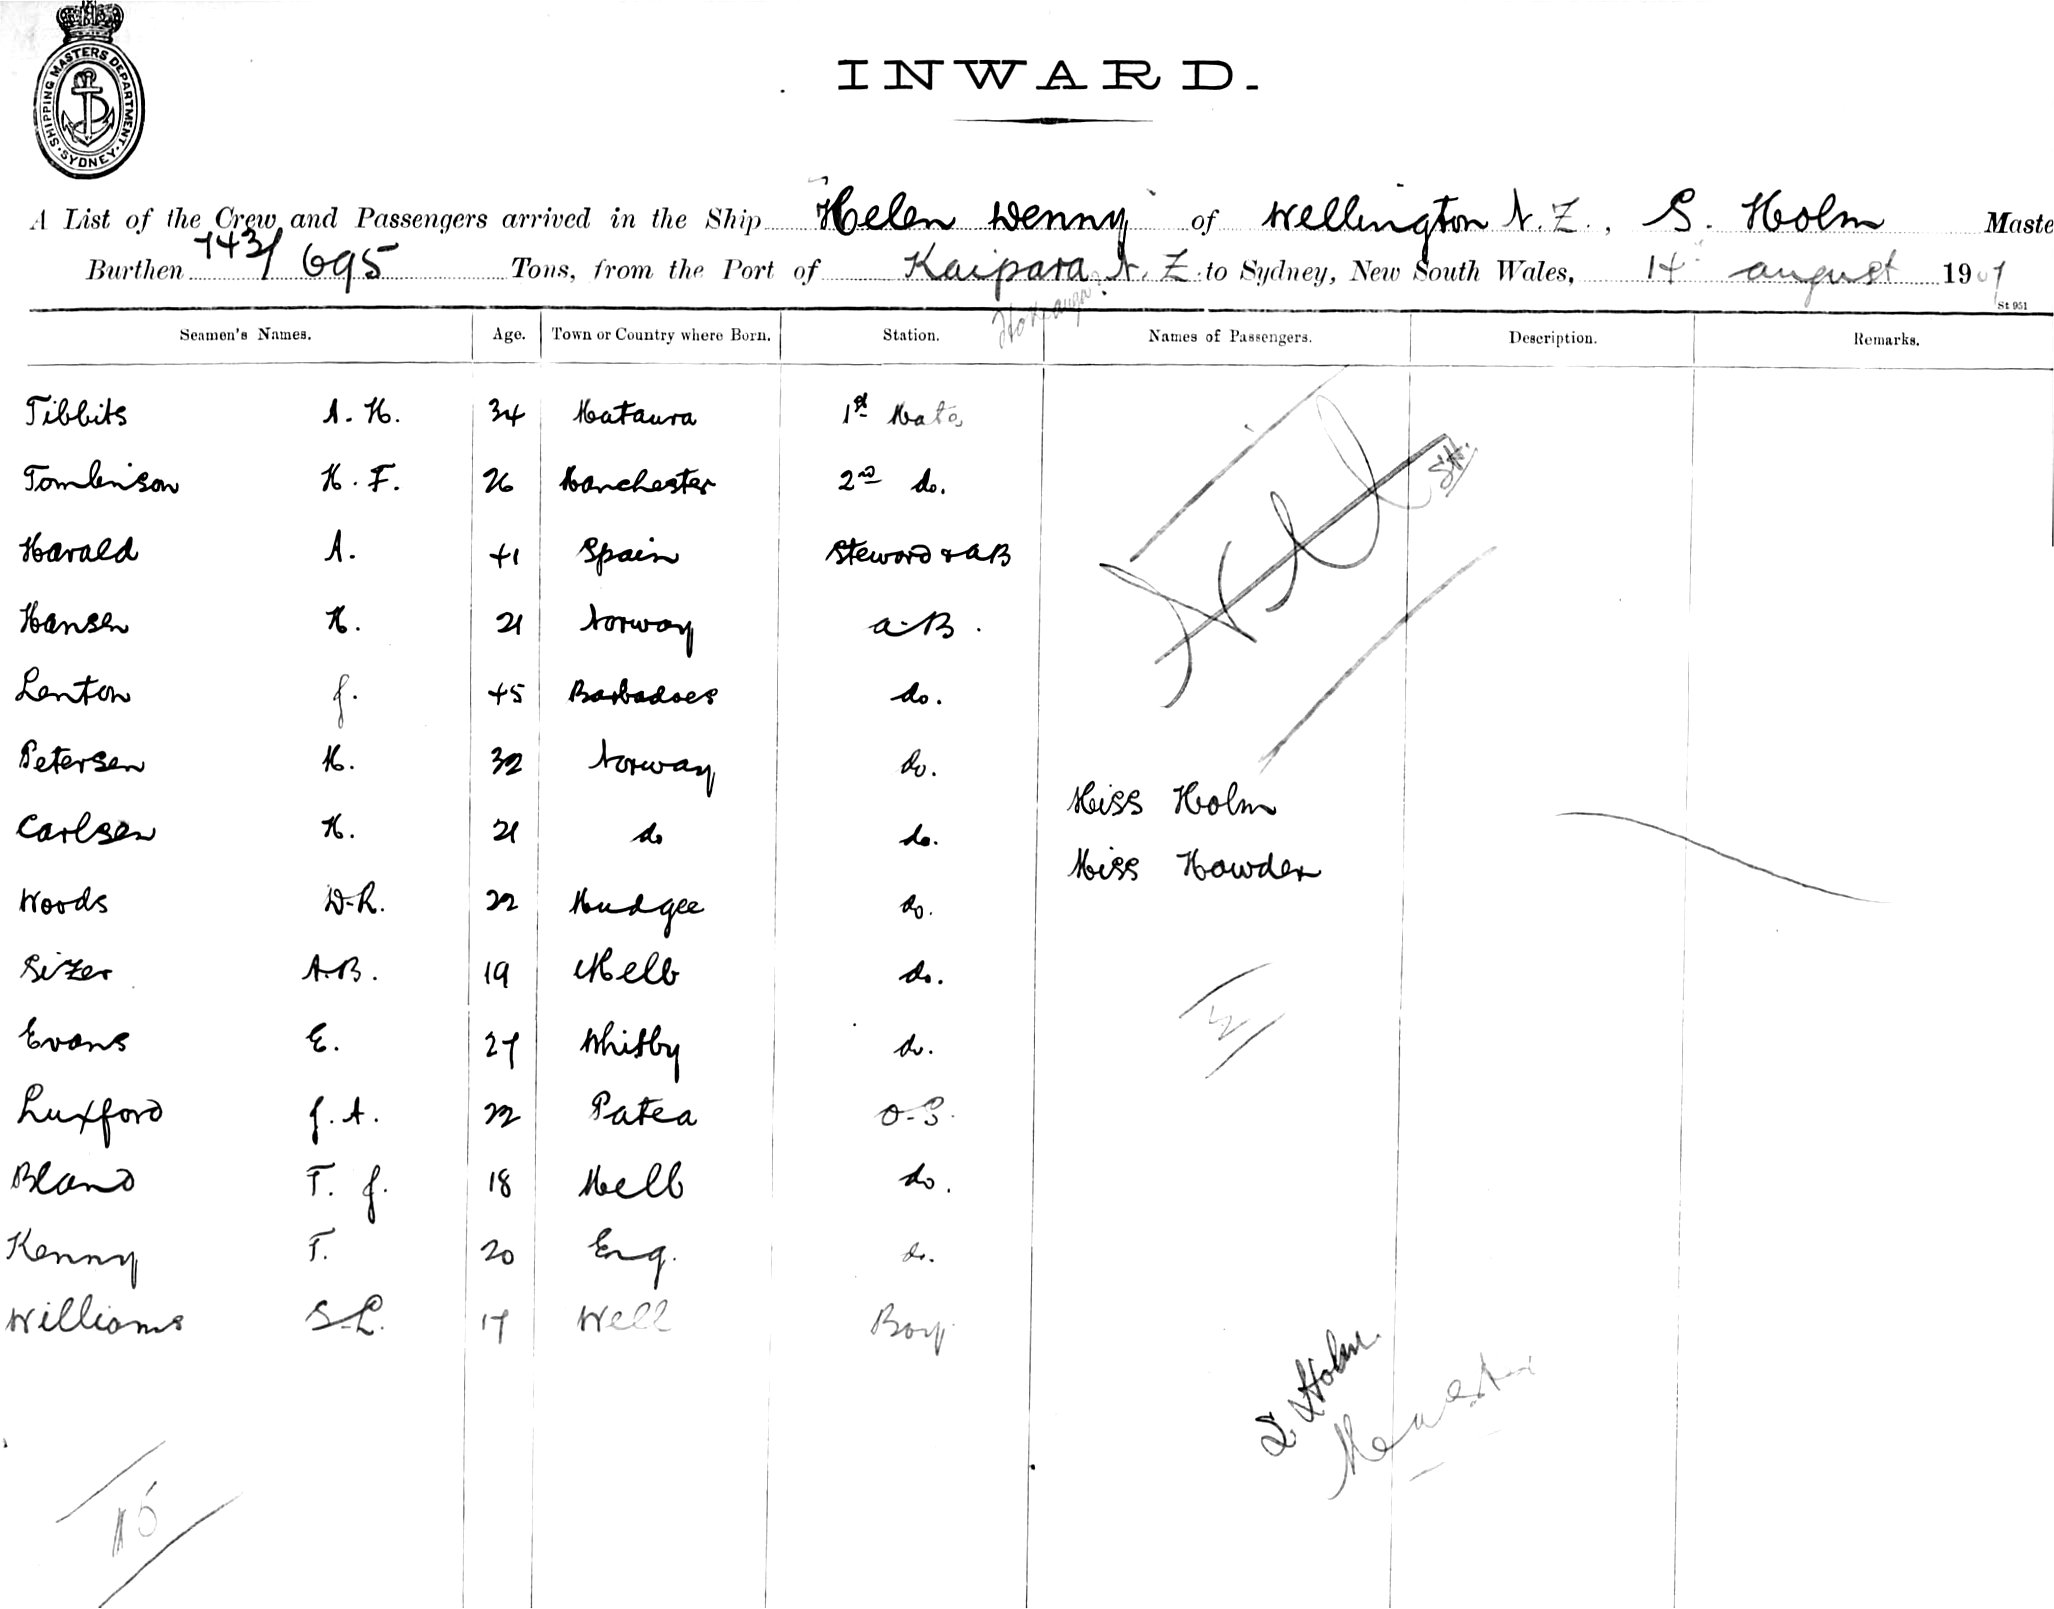 SHIPPING MASTERS DEPARTMENT
SYDNEY
INWARD.
A List of the Crew and Passengers arrived in the Ship "Helen Denny" of Wellington N.Z., S. Holm Maste
Burthen 743/695 Tons, from the Port of Kaipara N.Z. to Sydney, New South Wales, 14 august 1907
Hokianga?
St 951
Seamen's Names. Age. Town or Country where Born. Station. Names of Passengers. Description. Remarks.
Tibbits A. H. 34 Mataura 1st Mate
Tomlinson H. F. 26 Manchester 2nd do.
Harald A. 41 Spain Steward & AB
Hansen H. 21 Norway A-B.
Lenton J. 45 Barbadoes do.
Petersen H. 32 Norway do.
Carlsen H. 21 do do.
Woods D-R. 22 Mudgee do.
Sizer A-B. 19 Melb do.
Evans E. 27 Whitby do.
Luxford J. A. 22 Patea O-S.
Bland T. J. 18 Melb do.
Kenny T. 20 Eng. do.
Williams S-L. 17 Well Boy.
Nil
SH.
Miss Holm
Miss Howden
S. Holm.
Master